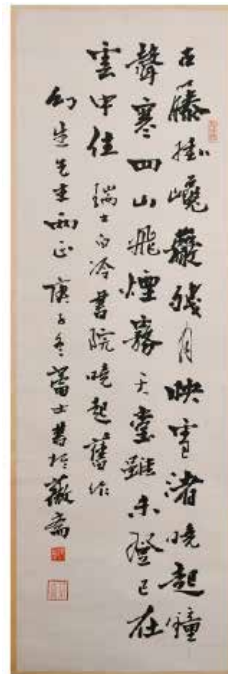 古藤挂巉巖殘月映雪渚曉起鐘
聲寒四山飛煙霧天堂雖未登已在
雲中住 瑞士白冷書院曉起舊作
幻生先生兩正 庚子冬 士書於薇齋